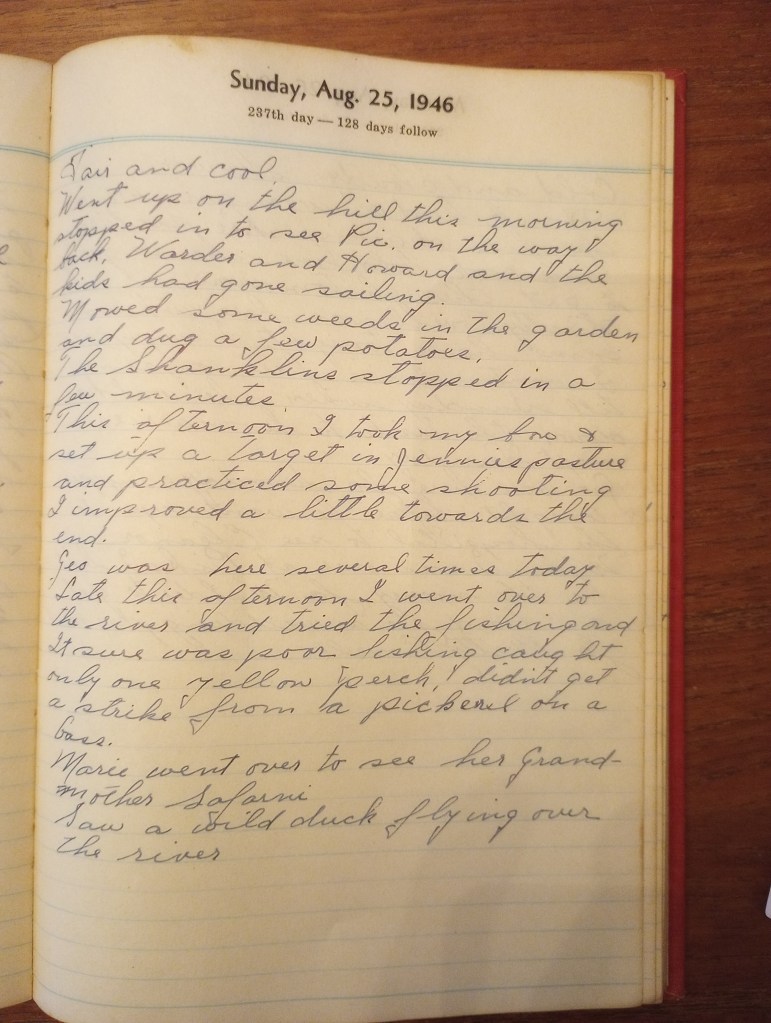 Sunday, Aug. 25, 1946
237th day — 128 days follow
Fair and cool.
Went up on the hill this morning
stopped in to see Pic. on the way
back. Warder and Howard and the
kids had gone sailing.
Mowed some weeds in the garden
and dug a few potatoes.
The Shanklins stopped in a
few minutes.
This afternoon I took my bow &
set up a target in Jennies pasture
and practiced some shooting
I improved a little towards the
end.
Geo was here several times today
Late this afternoon I went over to
the river and tried the fishing and
It sure was poor fishing caught
only one yellow perch, didn't get
a strike from a pickerel on a
bass.
Marie went over to see her Grand-
mother
Saw a wild duck flying over
the river